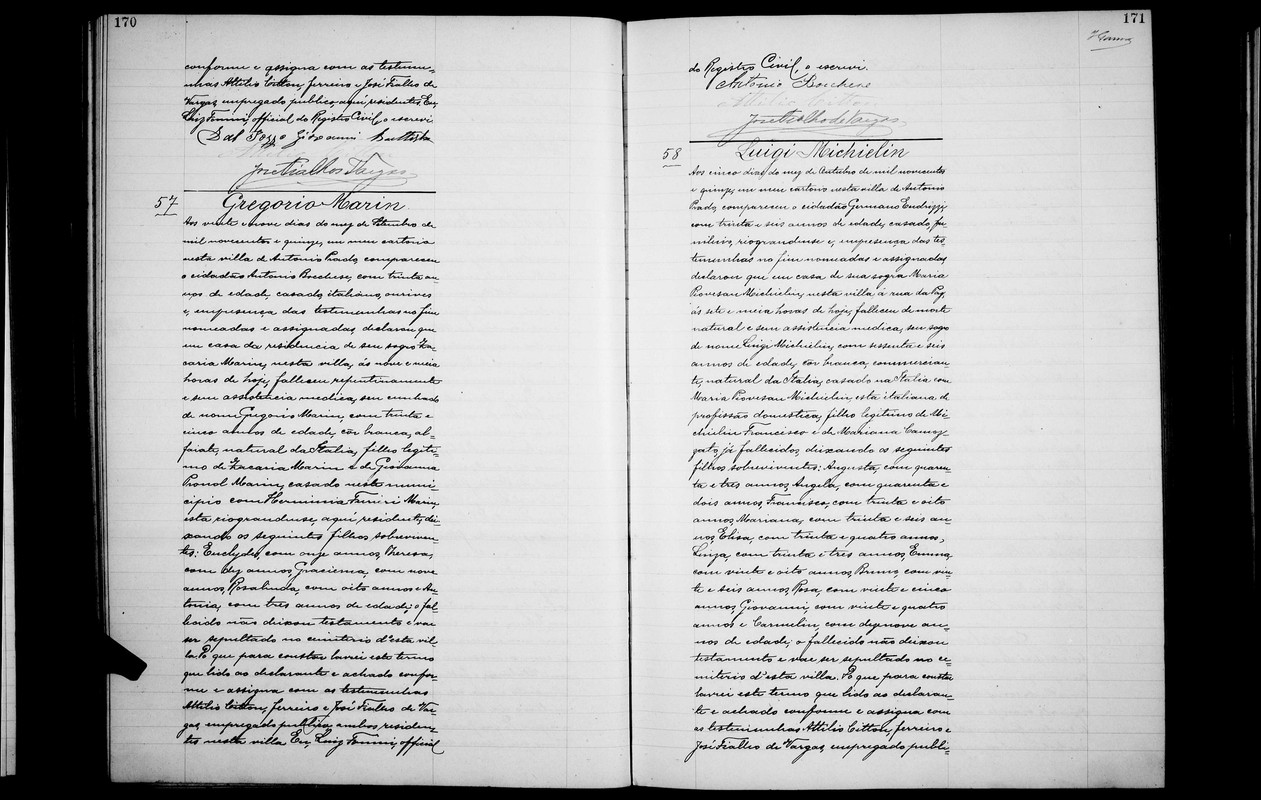 170
conforme e assigna com as testemu=
nhas Attilio Citton, ferreiro e José Fialho de
Vargas, empregado publico, aqui residentes. Eu,
Luiz Tommi, official do Registro Civil, o escrevi.
Dal Pozzo Giovanni Battista
Attilio Citton
José Fialho de Vargas
57
Gregorio Marin
Aos vinte e nove dias do mez de Setembro de
mil novecentos e quinze, em meu cartorio
nesta villa de Antonio Prado, compareceu
o cidadão Antonio Bocchese, com trinta an=
nos de edade, casado, italiano, ourives
e, em presença das testemunhas no fim
nomeadas e assignadas, declarou que
em casa da residencia de seu sogro Za=
caria Marin, nesta villa, ás nove e meia
horas de hoje, falleceu repentinamente
e sem assistencia medica, seu cunhado
de nome Gregorio Marin, com trinta e
cinco annos de edade, côr branca, al=
faiate, natural da Italia, filho legiti=
mo de Zacaria Marin e de Giovanna
Marin, casado neste muni=
cipio com Herminia Marin,
esta riograndense, aqui residente, dei=
xando os seguintes filhos sobreviven=
tes: Euclydes, com onze annos, Thereza,
com dez annos, Graciema, com nove
annos, Rosalinda, com oito annos e An=
tonia, com tres annos de edade; o fal=
lecido não deixou testamento e vae
ser sepultado no cemiterio d'esta vil=
la. Do que para constar lavrei este termo
que lido ao declarante e achado confor=
me e assigna com as testemunhas
Attilio Citton, ferreiro e José Fialho de Var=
gas, empregado publico ambos residen=
tes nesta villa. Eu, Luiz Tommi, official
171
do Registro Civil, o escrevi.
Antonio Bocchese
Attilio Citton
José Fialho de Vargas
58
Luigi Michielin
Aos cinco dias do mez de Outubro de mil novecentos
e quinze, em meu cartorio nesta villa de Antonio
Prado, compareceu o cidadão Germano Endrizzi,
com trinta e seis annos de edade, casado, fu=
nileiro, riograndense e, em presença das tes=
temunhas no fim nomeadas e assignadas,
declarou que em casa de sua sogra Maria
Piovesan Michielin, nesta villa, á rua da Paz,
ás sete e meia horas de hoje, falleceu de morte
natural e sem assistencia medica, seu sogro
de nome Luigi Michielin, com sessenta e seis
annos de edade, côr branca, commercian=
te, natural da Italia, casado na Italia com
Maria Piovesan Michielin, esta italiana de
profissão domestica, filho legitimo de Mi=
chielin Francisco e de Mariana Camoz=
zato, já fallecidos, deixando os seguintes
filhos sobreviventes: Augusta, com quaren=
ta e tres annos, Angela, com quarenta e
dois annos, Francisco, com trinta e oito
annos, Mariana, com trinta e seis an=
nos, Elisa, com trinta e quatro annos,
Luiza, com trinta e tres annos, Emma,
com vinte e oito annos, Bruno, com vin=
te e seis annos, Rosa, com vinte e cinco
annos, Giovanni, com vinte e quatro
annos e Carmelin, com dezenove an=
nos de edade; o fallecido não deixou
testamento e vae ser sepultado no ce=
miterio d'esta villa. Do que para constar
lavrei este termo que lido ao declaran=
te e achado conforme e assigna com
as testemunhas Attilio Citton, ferreiro e
José Fialho de Vargas, empregado publi=